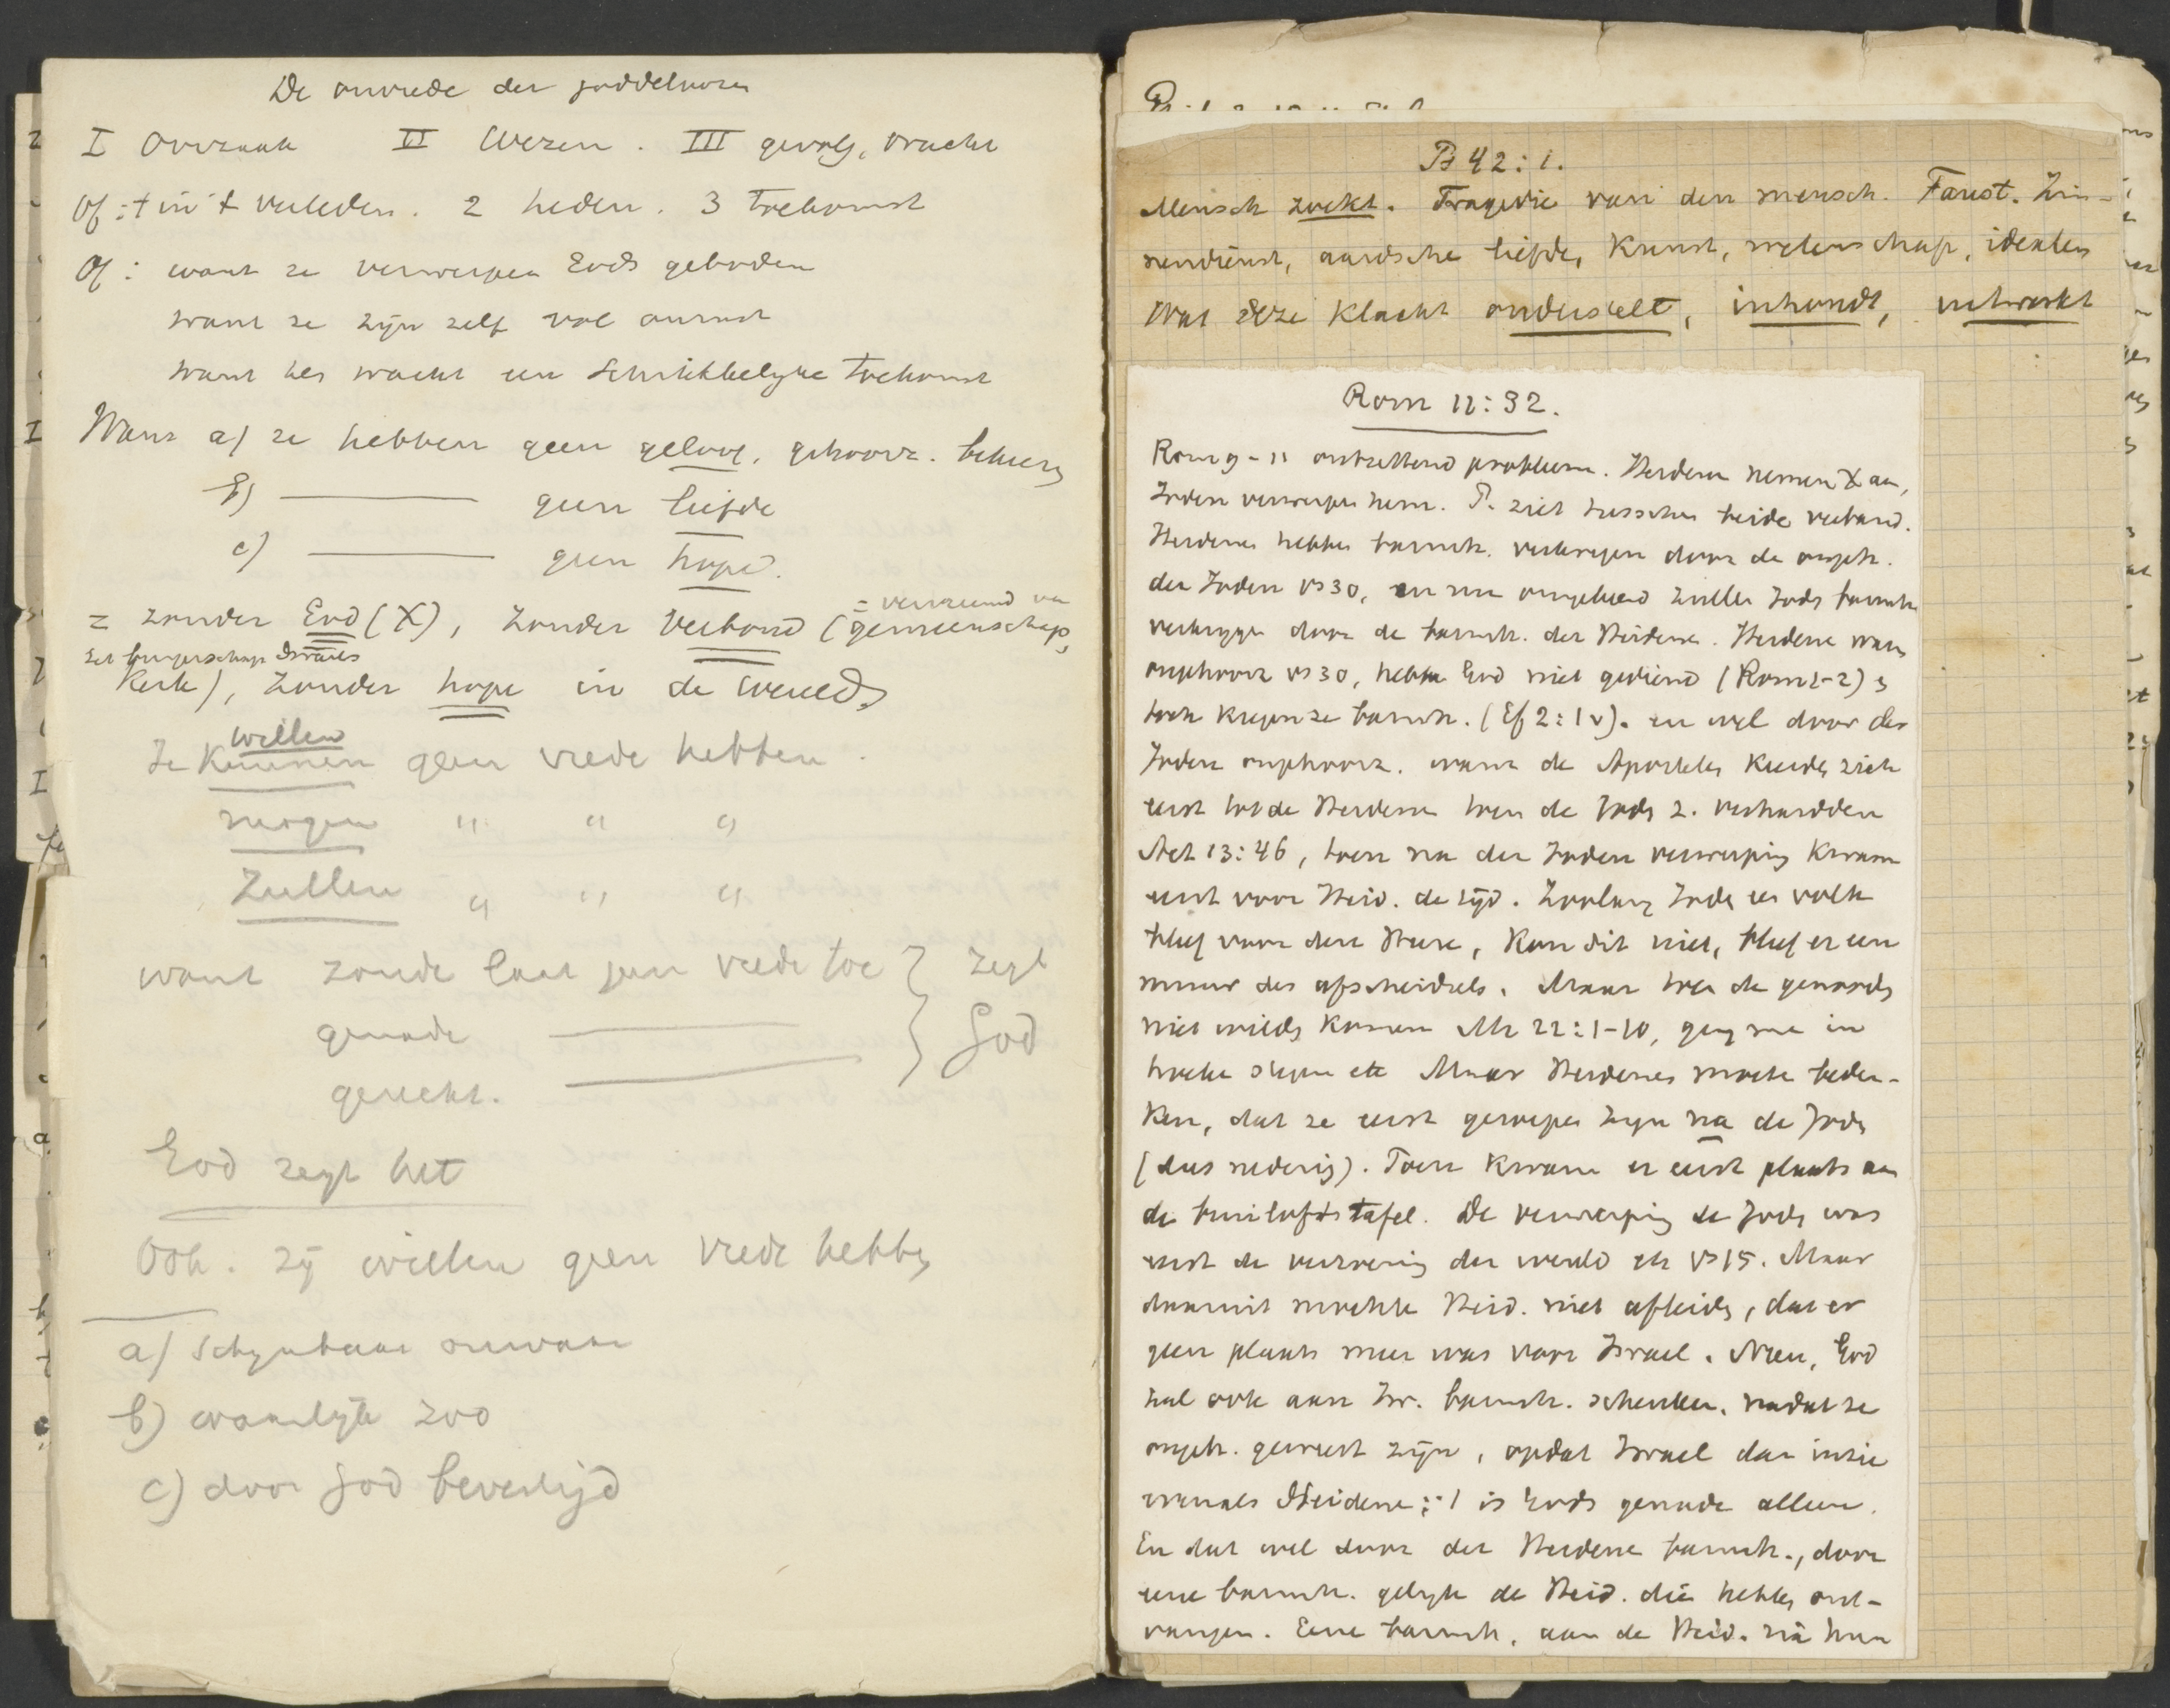 De onvrede der goddeloozen
I Oorzaak II Wezen. III gevolg, vrucht
Of: 1 in 't verleden. 2 heden. 3 toekomst
Of: want ze verwerpen Gods geboden
want ze zijn zelf vol onrust
want hen wacht een schrikkelyke toekomst
Want a) ze hebben geen geloof, gehoorz.
b) ——— geen liefde
c) ——— geen hope.
= vervreemd van
= zonder God (X), zonder verbond (gemeenschap,
het burgerschap Israels
Kerk), zonder hope in de wereld
willen
Ze kunnen geen vrede hebben.
mogen " " "
Zullen " " "
want zonde laat geen vrede toe } zegt
genade ——— } God
gerecht. ———
God zegt het
Ook. zij willen geen vrede hebben
a) Schynbaar onwaar
b) waarlyk zoo
c) door God bevestigd
Ps 42:1.
Mensch zoekt. Tragedie van den mensch. Faust. Zin-
nendienst, aardsche liefde, Kunst, wetenschap, idealen
Wat deze Klacht onderstelt, inhoudt, uitwerkt
Rom 11:32.
Rom 9-11 ontzettend probleem. Heidenen nemen X aan,
Joden verwerpen hem. P. ziet tusschen beide verband.
Heidenen hebben barmh. verkregen door de ongeh.
der Joden vs 30, en nu ongehoord zullen Joden barmh
verkrygen door de barmh. der Heidenen. Heidenen waren
ongehoorz vs 30, hebben God niet gediend (Rom 1-2) &
toch kregen ze barmh. (Ef 2:1v). en wel door der
Joden ongehoorz. want de Apostelen keerden zich
eerst tot de Heidenen toen de Joden z. verhardden
Act 13:46, toen na der Joden verwerping kwam
eerst voor Heid. de tijd. Zoolang Joden een volk
bleef voor den Heere, kon dit niet, bleef er een
muur des afscheidsels. Maar toen de genoodn
niet wilden komen Mt 22:1-10, ging men in
hoeken stegen etc Maar Heidenen moeten beden-
ken, dat ze eerst geroepen zyn na de Joden
(dus nederig). Toen kwam er eerst plaats aan
de bruiloftstafel. De verwerping der Joden was
eerst de verzoening der wereld etc vs 15. Maar
daaruit mochten Heid. niet afleiden, dat er
geen plaats meer was voor Israel. Neen, God
zal ook aan Isr. barmh. schenken, nadat ze
ongeh. geweest zijn, opdat Israel dan inzie
evenals Heidenen: 't is Gods genade alleen.
En dat wel door der Heidenen barmh., door
eene barmh. gelyk de Heid. die hebben ont-
vangen. Eene barmh, aan de Heid. na hun